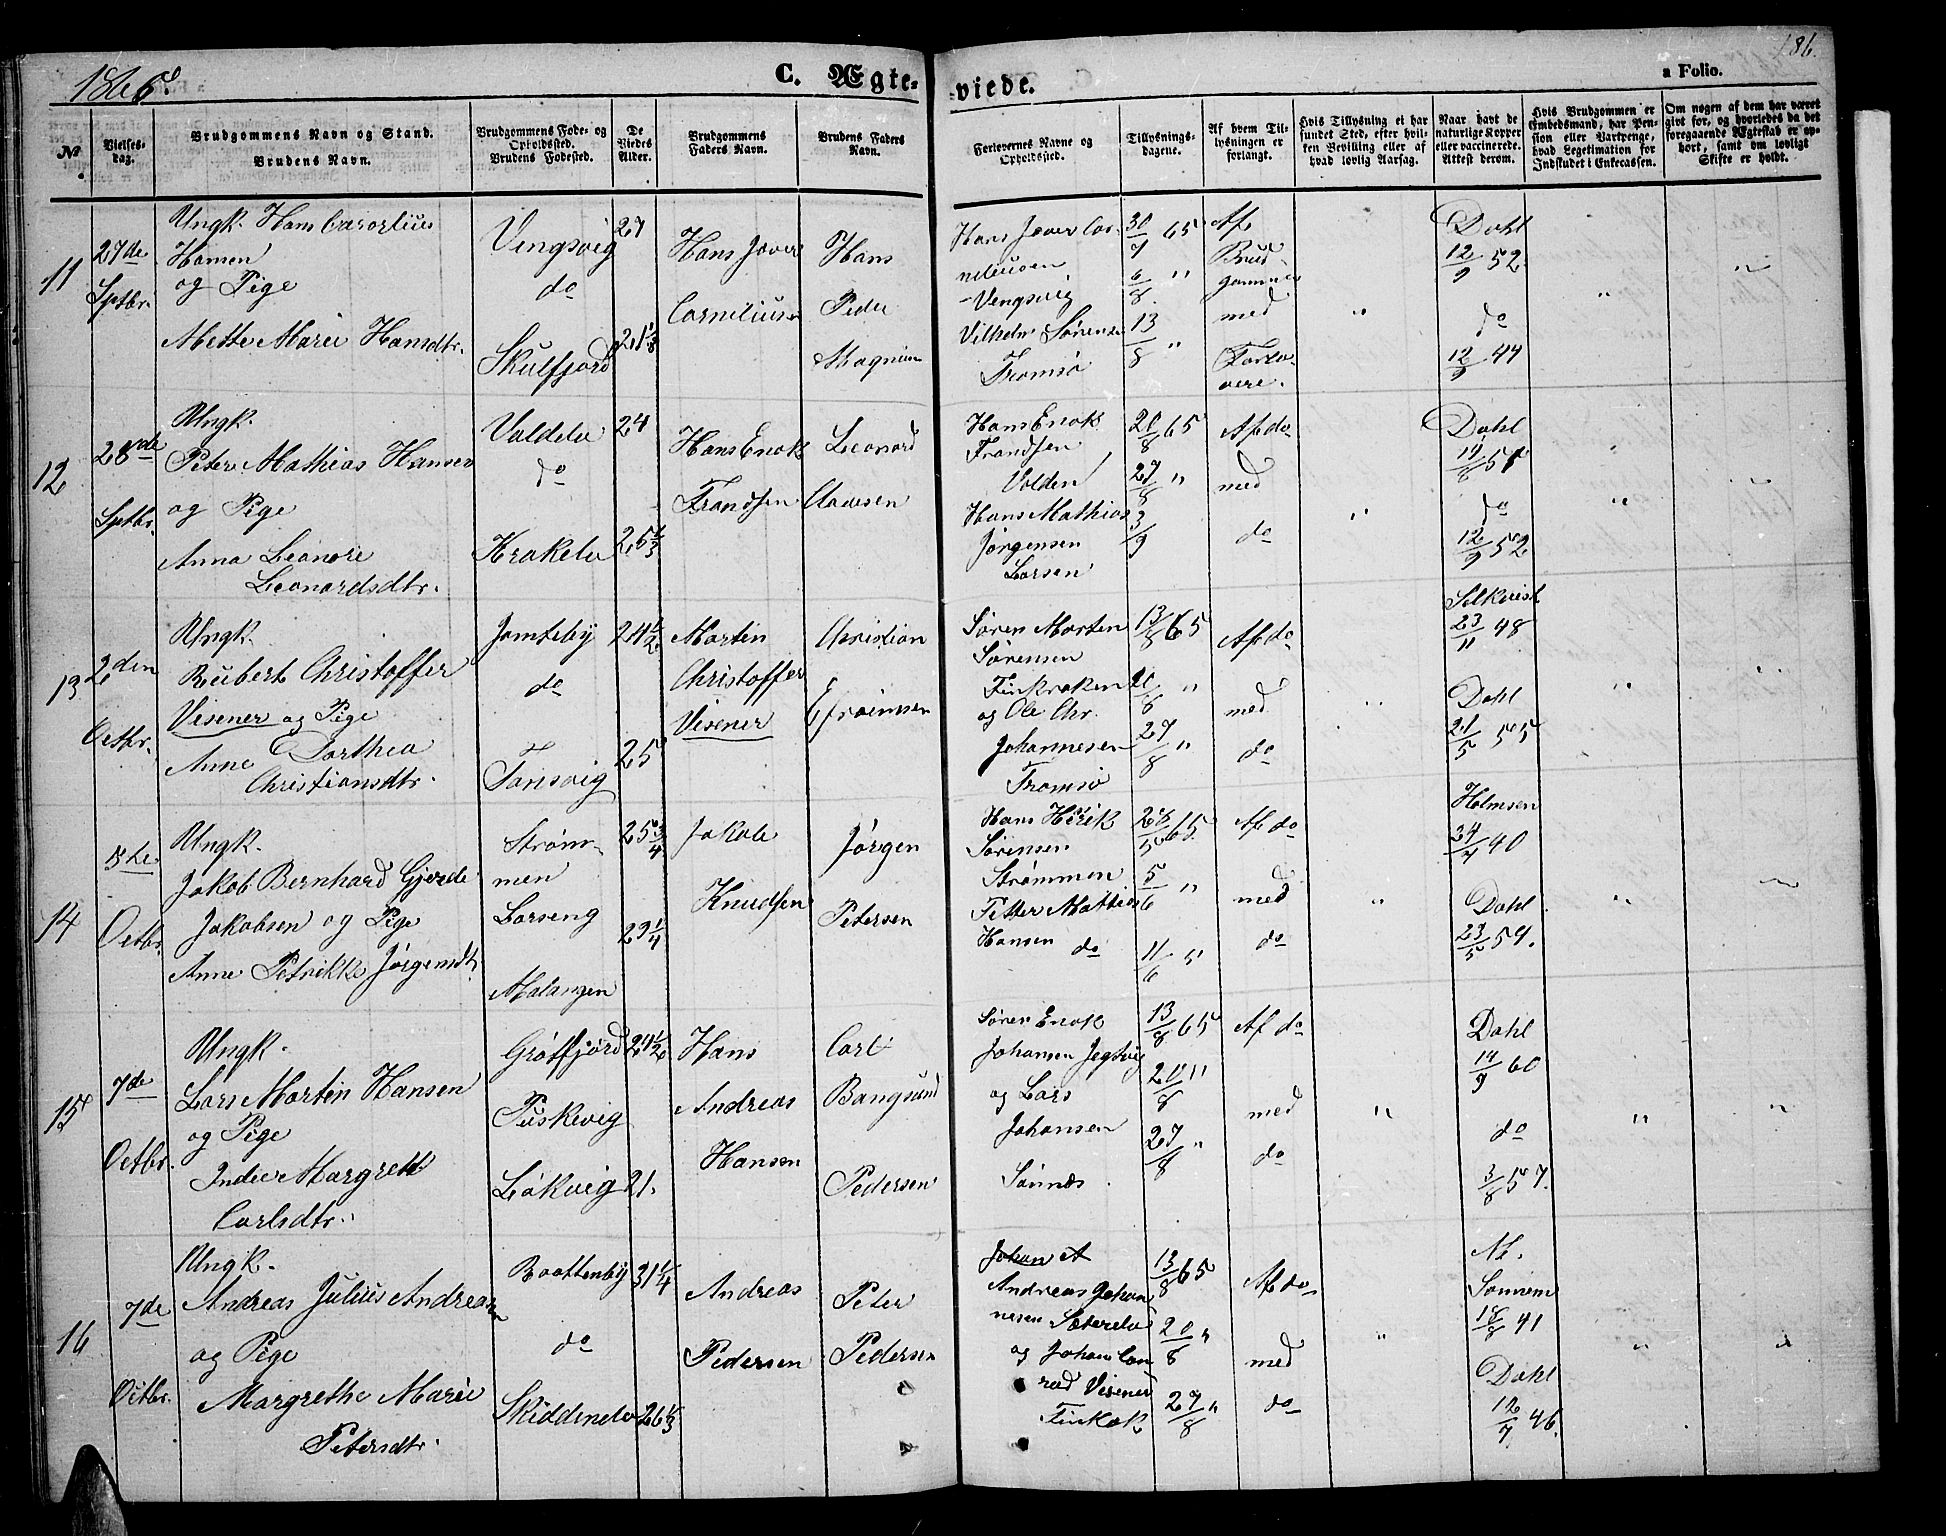 1865.
C. Ægte-
viede.
a Folio.
186.
No
Vielses-
dag.
Brudgommens Navn og Stand.
Brudens Navn.
Brudgommens Føde- og
Opholdssted.
Brudens Fødested.
De
Viedes
Alder.
Brudgommens
Faders Navn.
Brudens Faders
Navn.
Forlovernes Navne og
Opholdssted.
Tillysnings-
dagene.
Af hvem Til-
lysningen er
forlangt.
Hvis Tillysning ei har
fundet Sted, efter hvil-
ken Bevilling eller af
hvad lovlig Aarsag.
Naar havt de
naturlige Kopper
eller vaccinerede.
Attest derom.
Hvis Brudgommen er
Embedsmand, har Pen-
sion eller Vartpenge,
hvad Legitimation for
Indskudet i Enkecassen.
Om nogen af dem har været
gift før, og hvorledes da det
foregaaende Ægteskab er op-
hørt, samt om lovligt
Skifte er holdt.
11
27de
Sptbr.
Ungk. Hans
Hansen
og Pige
Mette Marie Hansdtr.
Vengsvig
do
Skulfjord
27
21 1/8
Hans Jæver
Corneliusen
Hans
Peder
Magnus
Hans Jæver Cor-
neliusen
-Vengsvig
Vilhelm Sørensen
Tromsø
30/7 65
6/8 "
13/8 "
Af
Brud-
gommen
med
Forlo-
vere.
"
Dahl
12/9 52.
do
12/9 44
"
"
12
28de
Sptbr.
Ungk.
Peter Mathias Hansen
og Pige
Anna Leonore
Leonardsdtr.
do
24
25 1/3
Hans Enok
Frandsen
Leonard
Claesen
Hans Enok
Frandsen
Volden
Hans Mathias
Jørgensen
Larsen
20/8 65
27/8 "
3/9
Af do
med
do
"
Dahl
19/8 51
do
12/9 52
"
"
13
2den
Octbr.
Ungk.
Rubert Christoffer
Visener og Pige
Anne Dorthea
Christiansdtr.
Jomteby
do
Tonsvig
24 1/2
25
Morten
Christoffer
Visener
Christian
Efraimsen
Søren Morten
Sørensen
Finkroken
og Ole Chr.
Johannesen
Tromsø
13/8 65
20/8 "
27/8 "
Af do
med
do
"
23/11 48
Dahl
21/5 55
"
"
14
5te
Octbr.
Ungk.
Jakob Bernhard Gjerde
Jakobsen og Pige
Anne Petrikke Jørgensdtr.
Strøm-
men
Larseng
Malangen
25 3/4
29 1/4
Jakob
Knudsen
Jørgen
Petersen
Hans Henrik
Sørensen
Strømmen
Petter Mathias
Hansen do
28/5 65
5/6 "
11/6 "
Af do
med
do
"
Holmsen
24/7 40
Dahl
23/5 59.
"
"
15
7de
Octbr.
Ungk.
Lars Morten Hansen
og Pige
Margreth
Carlsdtr.
Grøtfjord
Puskevig
Løkvig
24 1/2
21.
Hans
Andreas
Hansen
Carl
Bangsund
Pedersen
Søren Enok
Johansen Jegtvig
og Lars
Johansen
Sønnes
13/8 65
20/8 "
27/8 "
Af do
med
do
"
Dahl
14/9 60
do
3/8 57.
"
"
16
7de
Octbr.
Ungk.
Andreas Julius Andreasen
og Pige
Margrethe Marie
Petersdtr.
do
Skiddenelv
31 1/4
26 1/3
Andreas
Pedersen
Peter
Pedersen
Johan A
Andreas Johan
nesen Sæterelv
og Johan Con
rad Visener
13/8 65
20/8 "
27/8 "
Af do
med
do
"
18/8 41
Dahl
12/7 46.
"
"